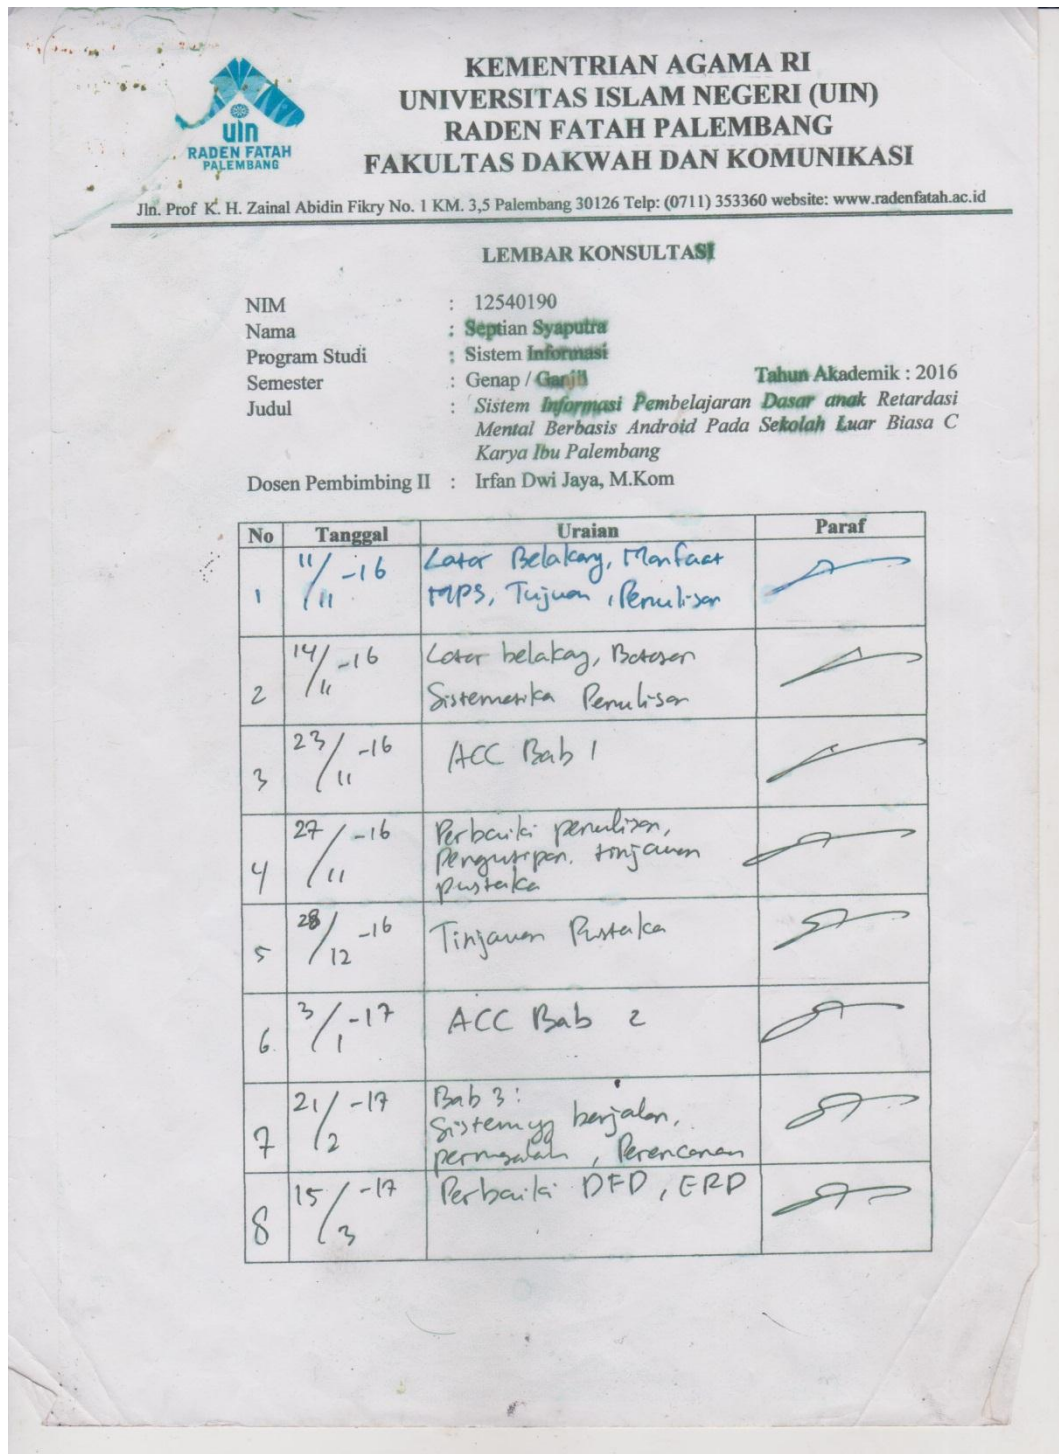 uin
RADEN FATAH
PALEMBANG
KEMENTRIAN AGAMA RI
UNIVERSITAS ISLAM NEGERI (UIN)
RADEN FATAH PALEMBANG
FAKULTAS DAKWAH DAN KOMUNIKASI
Jln. Prof K. H. Zainal Abidin Fikry No. 1 KM. 3,5 Palembang 30126 Telp: (0711) 353360 website: www.radenfatah.ac.id
LEMBAR KONSULTASI
NIM : 12540190
Nama : Septian Syaputra
Program Studi : Sistem Informasi
Semester : Genap / Ganjil Tahun Akademik : 2016
Judul : Sistem Informasi Pembelajaran Dasar anak Retardasi
Mental Berbasis Android Pada Sekolah Luar Biasa C
Karya Ibu Palembang
Dosen Pembimbing II : Irfan Dwi Jaya, M.Kom
No Tanggal Uraian Paraf
1 11/11 -16 Latar Belakang, Manfaat
MPS, Tujuan, Penulisan
2 14/11 -16 Latar belakang, Batasan
Sistematika Penulisan
3 23/11 -16 ACC Bab 1
4 27/11 -16 Perbaiki penulisan,
Pengutipan. tinjauan
pustaka
5 28/12 -16 Tinjauan Pustaka
6 3/1 -17 ACC Bab 2
7 21/2 -17 Bab 3:
Sistem yg berjalan,
permasalah, Perencanan
8 15/3 -17 Perbaiki DFD, ERD